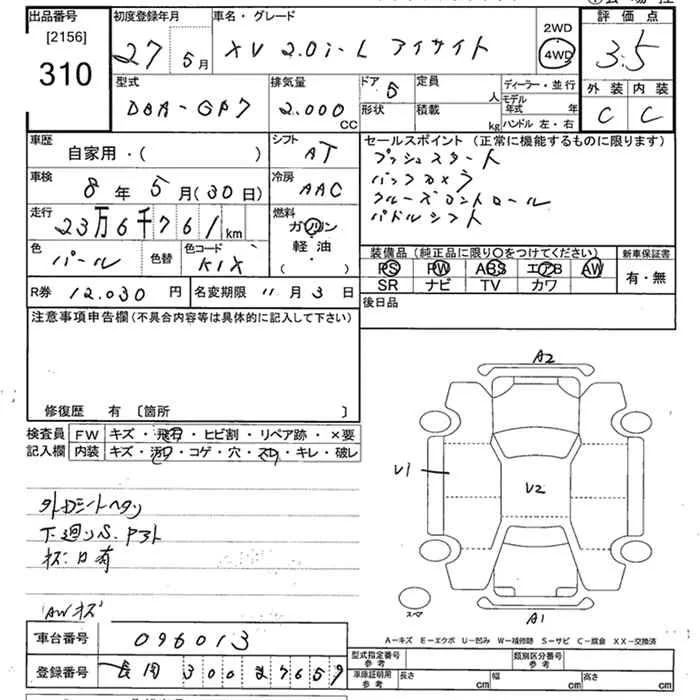 出品番号
[2156]
310
初度登録年月
27 5月
車名・グレード
XV 2.0i-L アイサイト
2WD
4WD
評価点
3.5
外装 内装
C C
型式
DBA-GP7
排気量
2.000
CC
ドア 5
形状
定員
人
積載
kg
ディーラー・並行
モデル年式 年
ハンドル 左・右
車歴
自家用・( )
シフト
AT
セールスポイント (正常に機能するものに限ります)
プッシュスタート
バックカメラ
クルーズコントロール
パドルシフト
車検
8年 5月(30日)
冷房
AAC
走行
23万6千761km
燃料
ガソリン
軽油・
( )
色
パール
色替
色コード
K1X
装備品 (純正品に限り〇をつけてください)
PS PW ABS エアB AW
SR ナビ TV カワ
新車保証書
有・無
R券 12.030円
名変期限 11月3日
後日品
注意事項申告欄 (不具合内容等は具体的に記入して下さい)
修復歴 有 〔箇所 〕
検査員記入欄
FW キズ・飛石・ヒビ割・リペア跡・×要
内装 キズ・汚れ・コゲ・穴・スレ・キレ・破レ
外Dシートヘタリ
下廻りS.
AWキズ
A2
U1
U2
A1
スペア
A-キズ E-エクボ U-凹み W-補修跡 S-サビ C-腐食 XX-交換済
車台番号 096013
登録番号
300
型式指定番号 参考
類別区分番号 参考
車庫証明用 参考
長さ cm
幅 cm
高さ cm